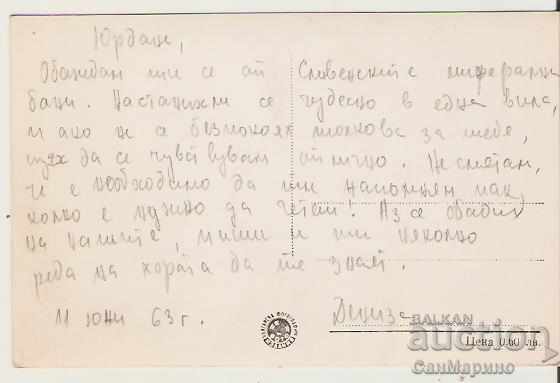 Юрдан,
Обаждам ти се от Сливенските минерални
бани. Настанихме се чудесно в една вила,
и ако не се безпокоях толкова за тебе,
щях да се чувствувам отлично. Не смятам,
че е необходимо да ти напомням пак,
колко е нужно да четеш! Аз се обадих
на нашите, пиши и ти няколко
реда на хората да те знаят.
11 юни 63 г.
Дениза
BALKAN
auction
Цена 0.60 лв.
СанМарино